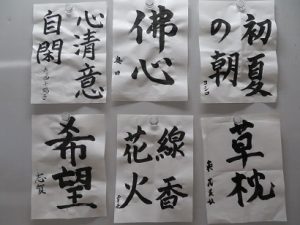 初夏
の朝
佛心
心清意
自閑
草枕
線香
花火
希望